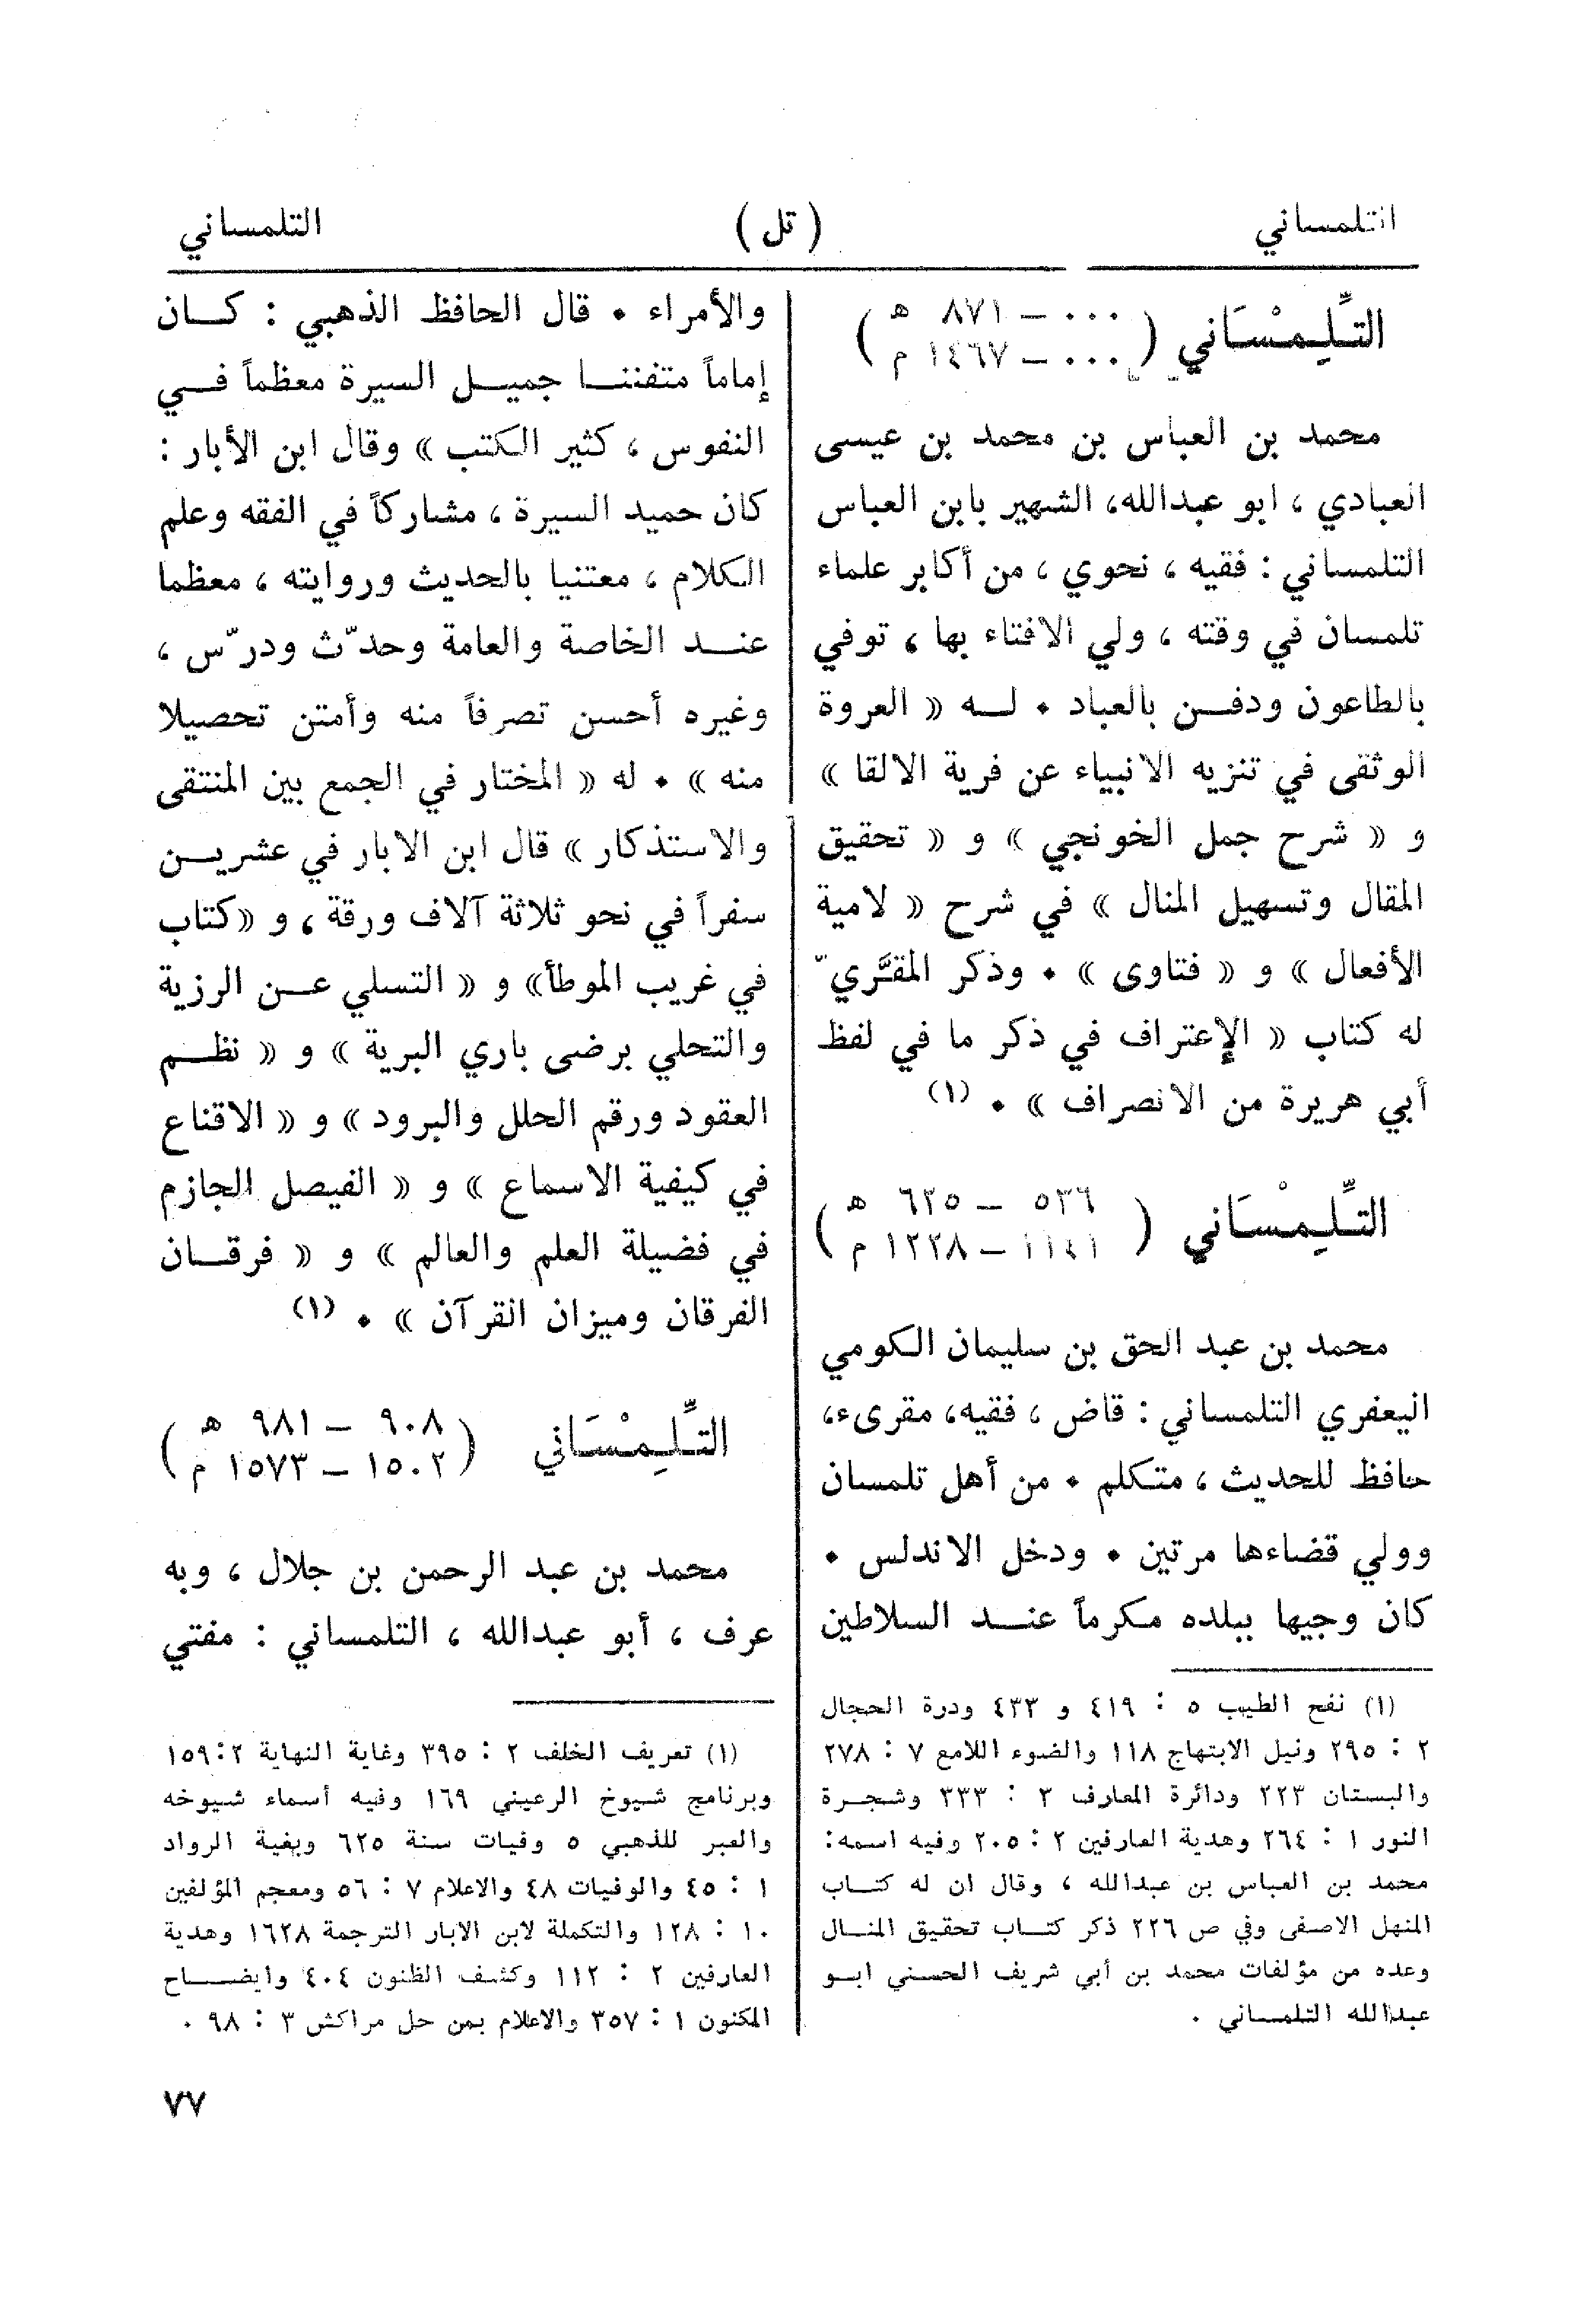 التلمساني
( تل )
التلمساني
التِّلِيمْسَاني ( ٠٠٠ – ٨٧١ هـ
٠٠٠ – ١٤٦٧ م )
محمد بن العباس بن محمد بن عيسى
العبادي ، ابو عبدالله، الشهير بابن العباس
التلمساني : فقيه ، نحوي ، من أكابر علماء
تلمسان في وقته ، ولي الافتاء بها ، توفي
بالطاعون ودفن بالعباد • له « العروة
الوثقى في تنزيه الانبياء عن فرية الالقا »
و « شرح جمل الخونجي » و « تحقيق
المقال وتسهيل المنال » في شرح « لامية
الأفعال » و « فتاوى » • وذكر المقَّريّ
له كتاب « الإعتراف في ذكر ما في لفظ
أبي هريرة من الانصراف » • (١)
التِّلِيمْسَاني ( ٥٣٦ – ٦٢٥ هـ
١١٤١ – ١٢٢٨ م )
محمد بن عبد الحق بن سليمان الكومي
اليعفري التلمساني : قاض ، فقيه، مقرىء،
حافظ للحديث ، متكلم • من أهل تلمسان
وولي قضاءها مرتين • ودخل الاندلس •
كان وجيها ببلده مكرماً عند السلاطين
(١) نفح الطيب ٥ : ٤١٩ و ٤٣٣ ودرة الحجال
٢ : ٢٩٥ ونيل الابتهاج ١١٨ والضوء اللامع ٧ : ٢٧٨
والبستان ٢٢٣ ودائرة المعارف ٣ : ٣٣٣ وشجرة
النور ١ : ٢٦٤ وهدية العارفين ٢ : ٢٠٥ وفيه اسمه:
محمد بن العباس بن عبدالله ، وقال ان له كتاب
المنهل الاصفى وفي ص ٢٢٦ ذكر كتاب تحقيق المنال
وعده من مؤلفات محمد بن أبي شريف الحسني ابو
عبدالله التلمساني .
والأمراء • قال الحافظ الذهبي : كان
إماماً متفننا جميل السيرة معظماً في
النفوس ، كثير الكتب » وقال ابن الأبار :
كان حميد السيرة ، مشاركاً في الفقه وعلم
الكلام ، معتنيا بالحديث وروايته ، معظما
عند الخاصة والعامة وحدّث ودرّس ،
وغيره أحسن تصرفاً منه وأمتن تحصيلا
منه » • له « المختار في الجمع بين المنتقى
والاستذكار » قال ابن الابار في عشرين
سفراً في نحو ثلاثة آلاف ورقة ، و «كتاب
في غريب الموطأ» و « التسلي عن الرزية
والتحلي برضى باري البرية » و « نظم
العقود ورقم الحلل والبرود » و « الاقناع
في كيفية الاسماع » و « الفيصل الجازم
في فضيلة العلم والعالم » و « فرقان
الفرقان وميزان القرآن » • (١)
التِّلِيمْسَاني ( ٩٠٨ – ٩٨١ هـ
١٥٠٢ – ١٥٧٣ م )
محمد بن عبد الرحمن بن جلال ، وبه
عرف ، أبو عبدالله ، التلمساني : مفتي
(١) تعريف الخلف ٢ : ٣٩٥ وغاية النهاية ٢ :١٥٩
وبرنامج شيوخ الرعيني ١٦٩ وفيه أسماء شيوخه
والعبر للذهبي ٥ وفيات سنة ٦٢٥ وبغية الرواد
١ : ٤٥ والوفيات ٤٨ والاعلام ٧ : ٥٦ ومعجم المؤلفين
١٠ : ١٢٨ والتكملة لابن الابار الترجمة ١٦٢٨ وهدية
العارفين ٢ : ١١٢ وكشف الظنون ٤٠٤ وايضاح
المكنون ١ : ٣٥٧ والاعلام بمن حل مراكش ٣ : ٩٨ .
٧٧